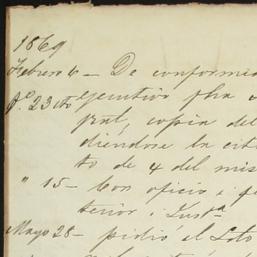 1869
Febrero 6 – De conformi
ejecutivo fha
gral, copia del
diendose la cita
to de 4 del mis
" 15 – Con oficio i
terior i Just.ª
Mayo 28 – pidió el Soto